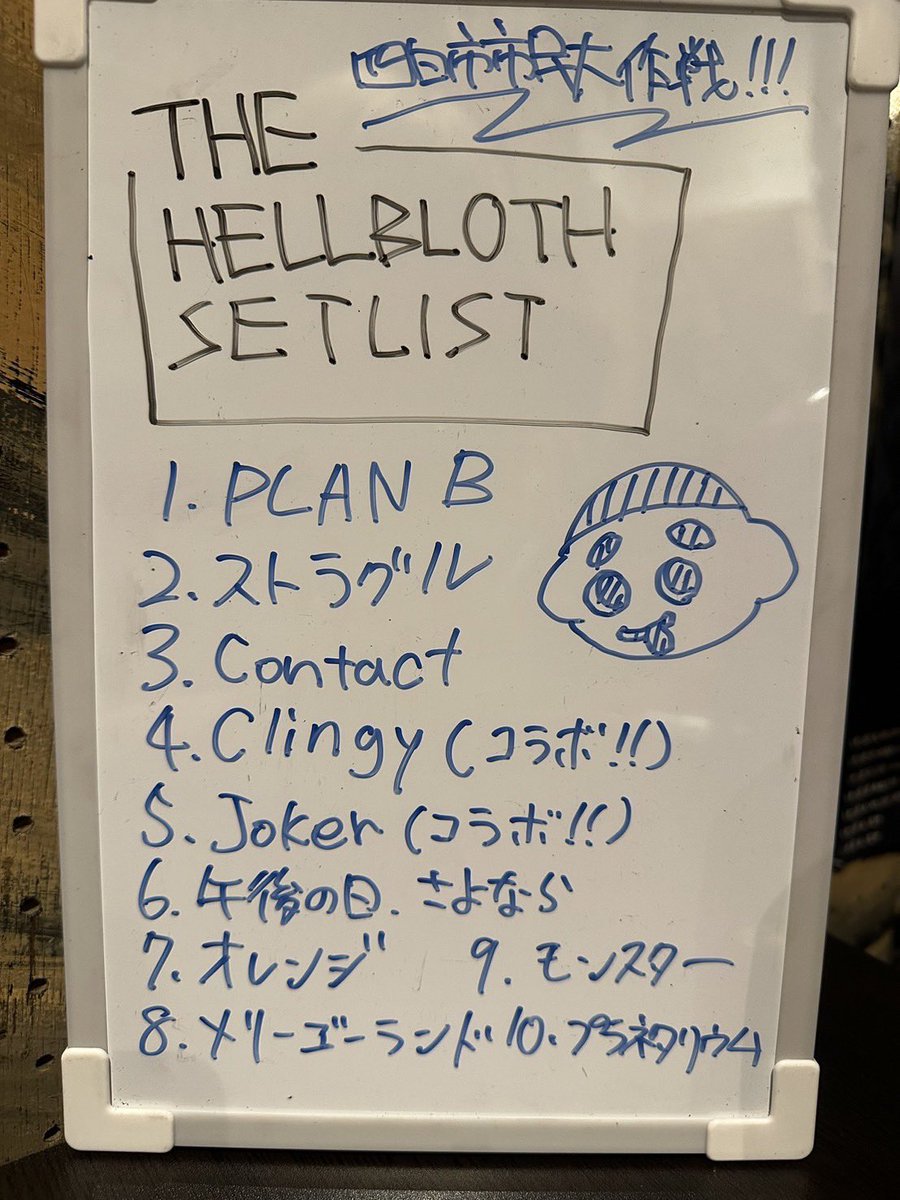 四日市市民大作戦!!!
THE
HELLBLOTH
SETLIST
1. PLAN B
2. ストラグル
3. Contact
4. Clingy (コラボ!!)
5. Joker (コラボ!!)
6. 午後の日、さよなら
7. オレンジ
8. メリーゴーランド
9. モンスター
10. プラネタリウム